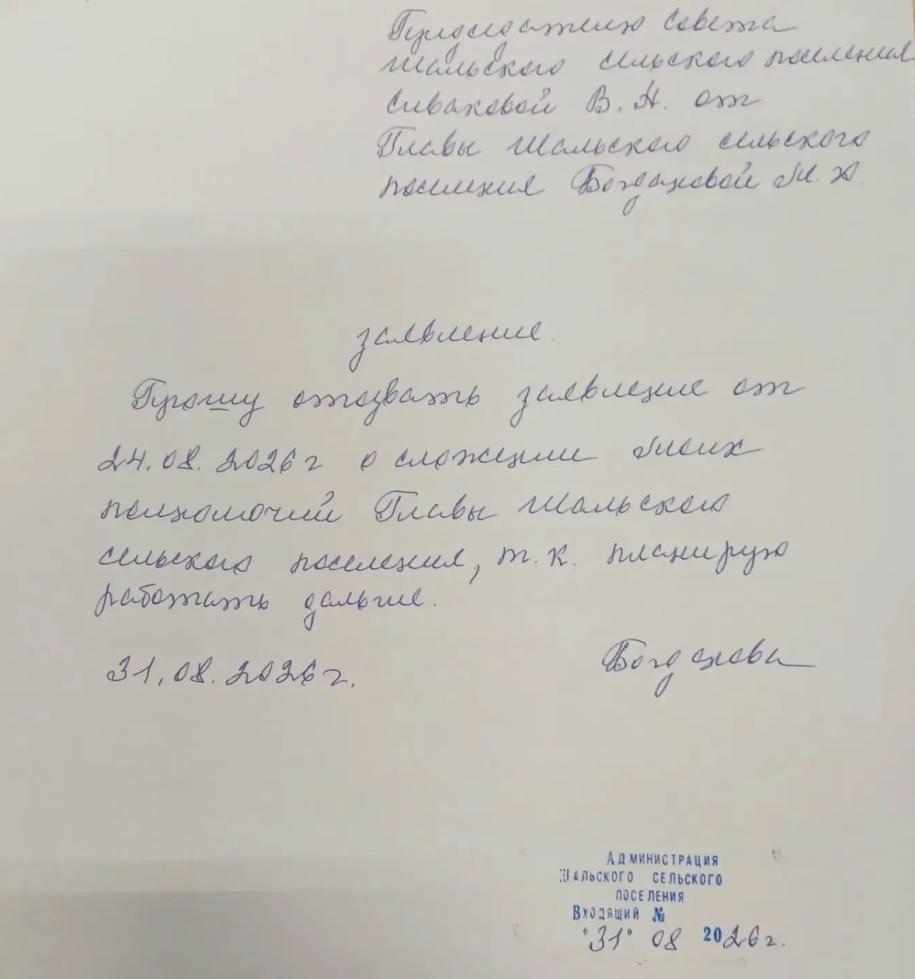 Председателю Совета
Шальского сельского поселения
Сиваковой В.Н. от
Главы Шальского сельского
поселения Богдановой М.А.
заявление.
Прошу отозвать заявление от
24.08.2026г о сложении моих
полномочий Главы Шальского
сельского поселения, т.к. планирую
работать дальше.
31.08.2026г.
Богданова
Администрация
Шальского сельского
поселения
Входящий №
"31" 08 2026г.